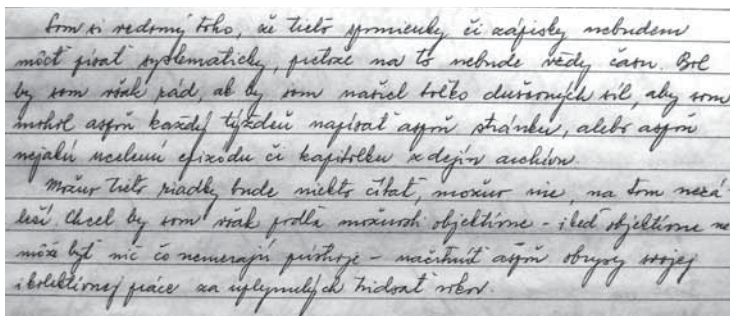 Som si vedomý toho, že tieto spomienky či zápisky nebudem
môcť písať systematicky, pretože na to nebude vždy času. Bol
by som však rád, ak by som našiel toľko duševných síl, aby som
mohol aspoň každý týždeň napísať aspoň stránku, alebo aspoň
nejakú ucelenú epizódu či kapitolku z dejín archívu.
Možno tieto riadky bude niekto čítať, možno nie, na tom nezá-
leží. Chcel by som však podľa možnosti objektívne - i keď objektívne ne
môže byť nič čo nemerajú prístroje - načrtnúť aspoň obrysy svojej
i kolektívnej práce za uplynulých tridsať rokov.